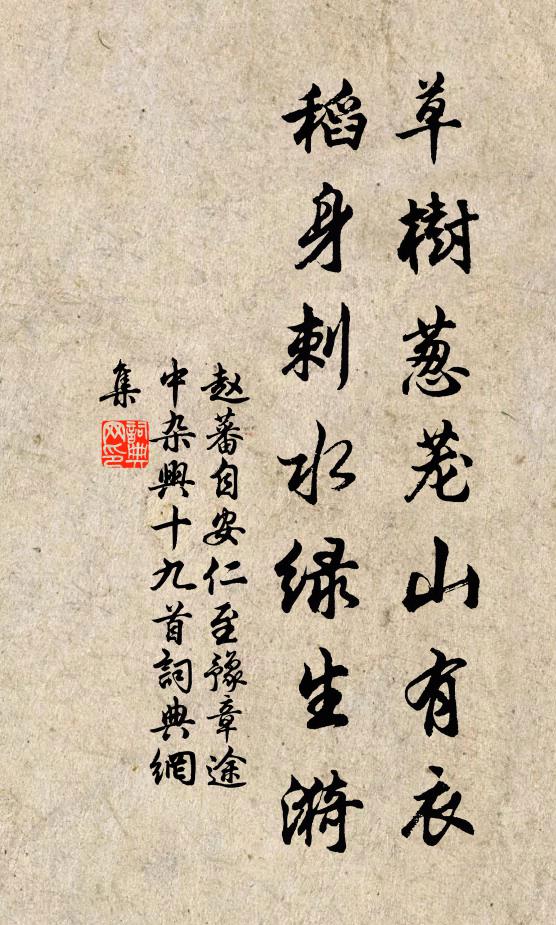 草樹葱蘢山有衣
稻身刺水绿生漪
赵蕃自安仁至豫章途
中杂興十九首詞典網
集
詞典
网印